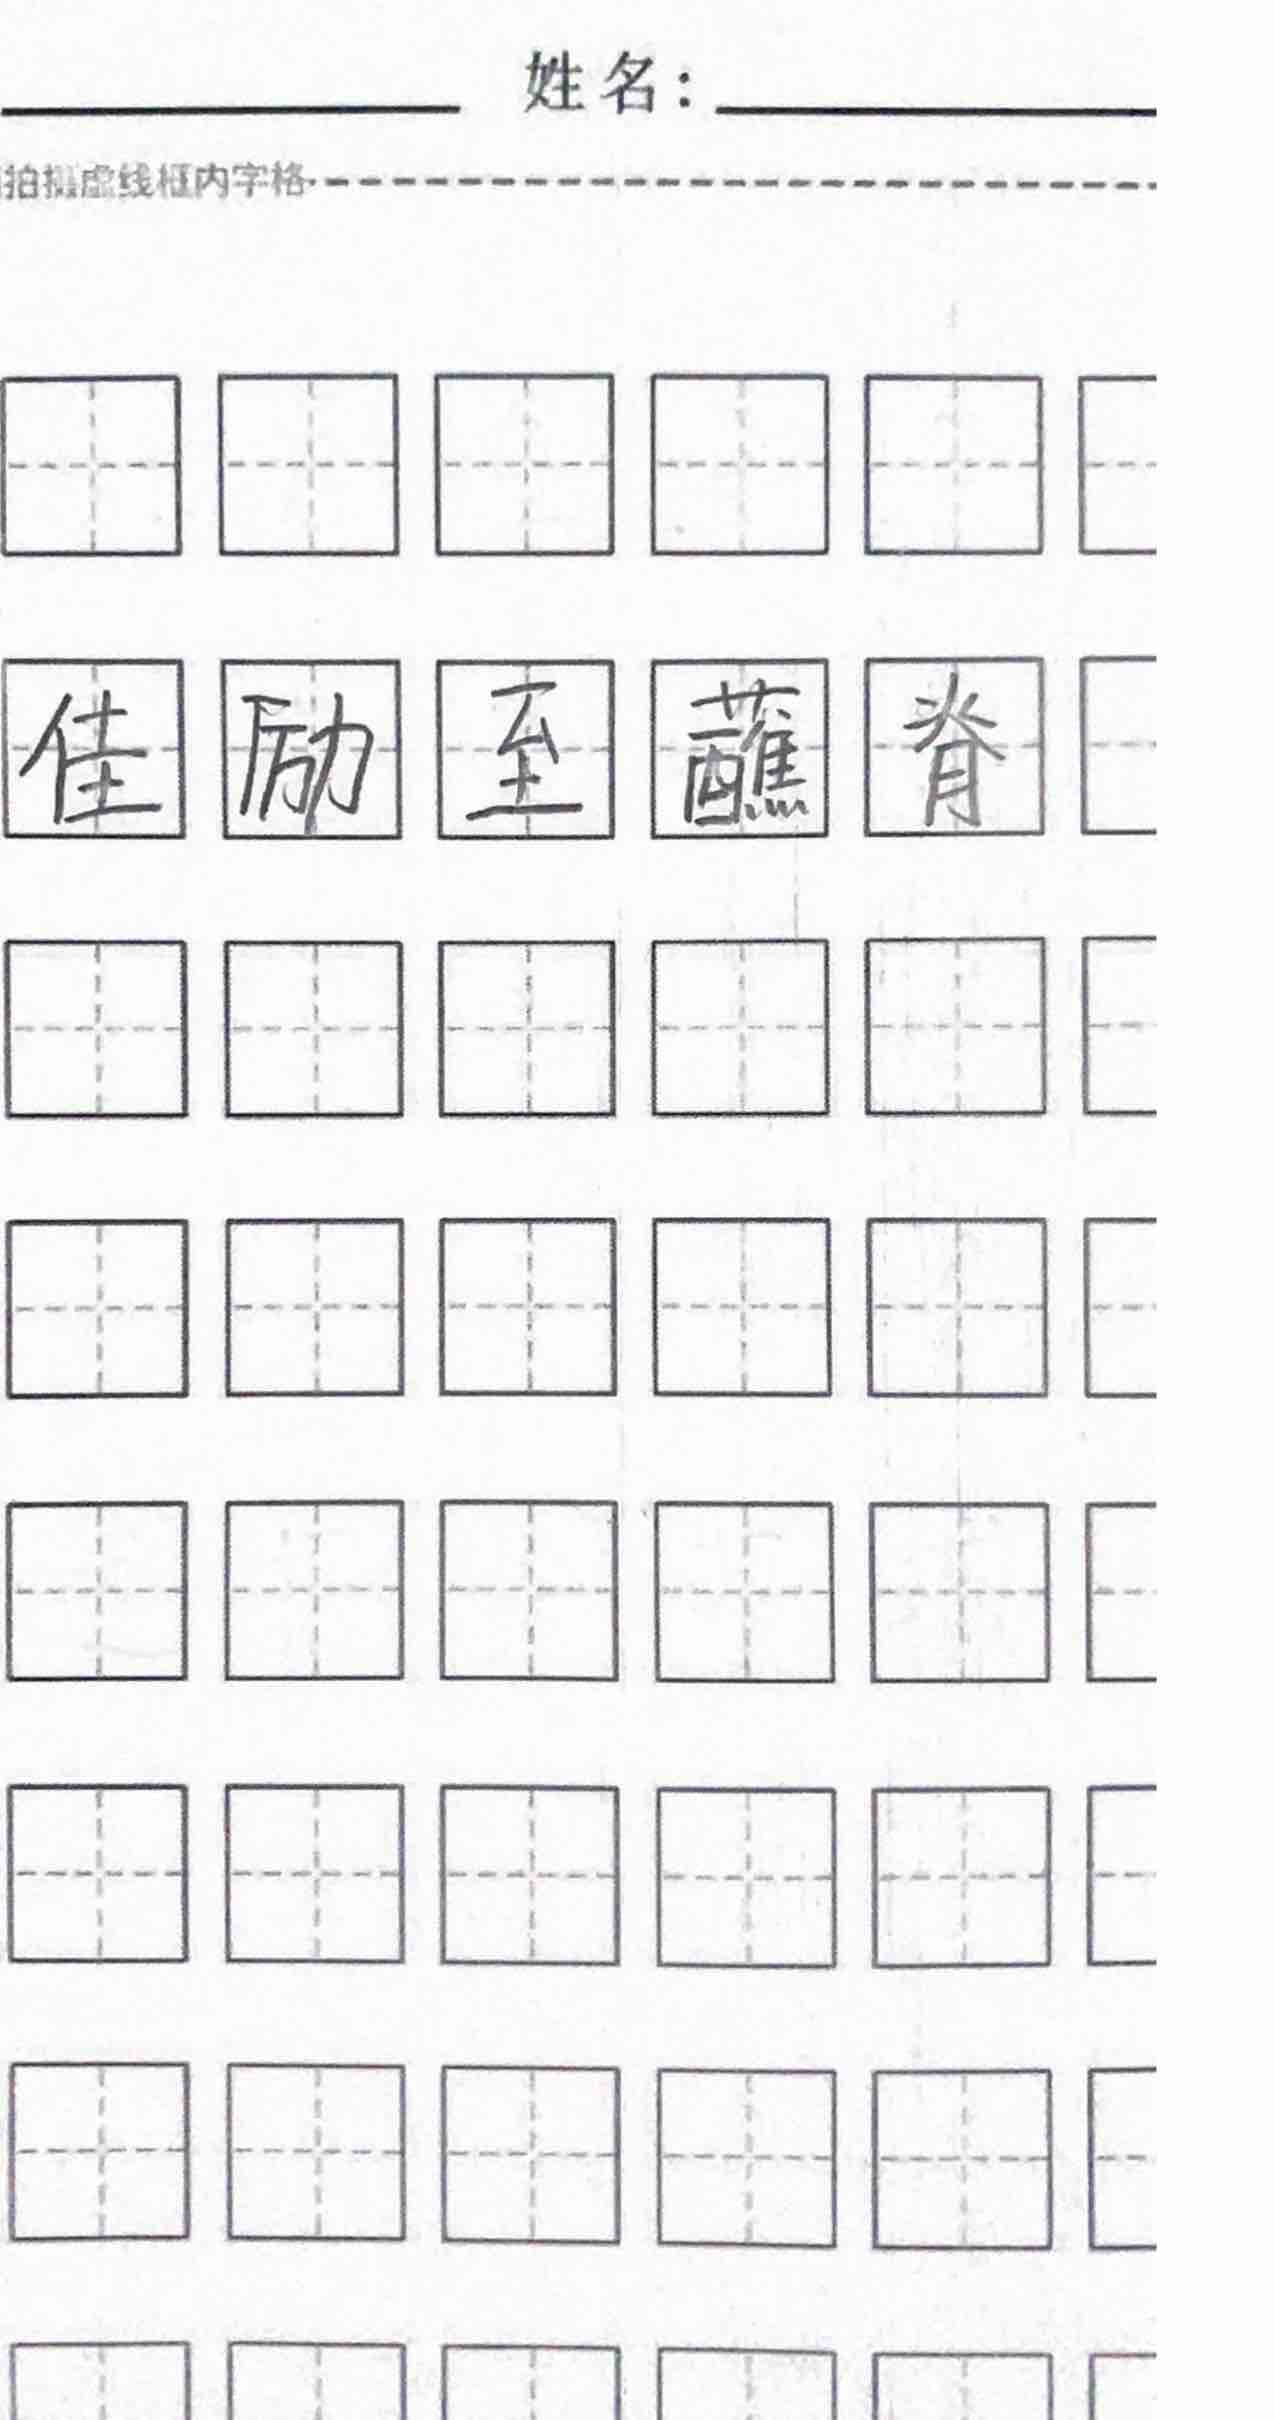 姓名：
拍摄虚线框内字格
佳励至蘸脊